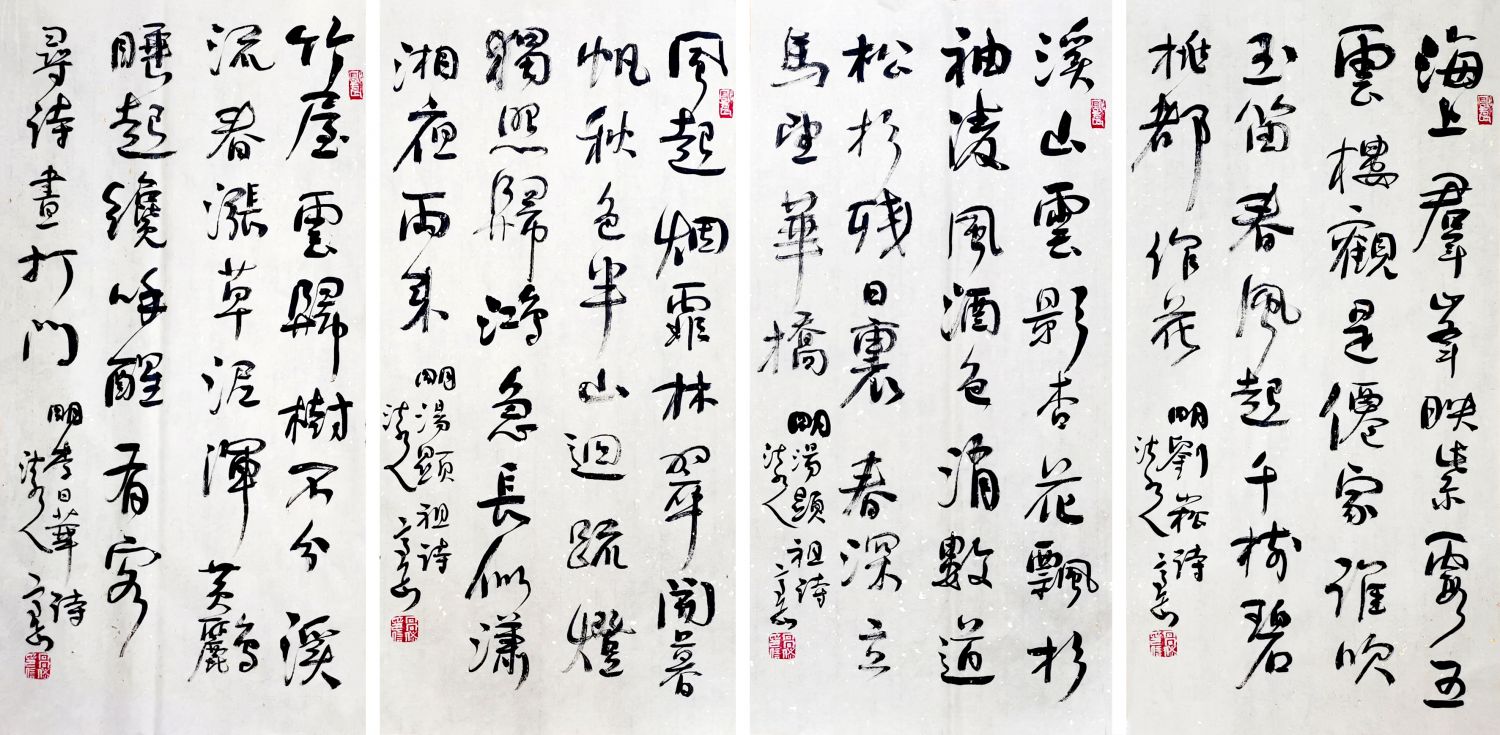 海上羣峯映紫霞五
雲樓觀是僊家誰吹
玉笛春風起千樹碧
桃都作花
明劉崧詩
溪山雲影杏花飄衫
袖淩風酒色消數道
松杉殘日裏春深立
馬望華橋
明湯顯祖詩
風起烟霏林翠開暮
帆秋色半山迴疏燈
獨照歸鴻急長似瀟
湘夜雨來
明湯顯祖詩
竹屋雲歸樹不分溪
流春漲草泥渾黃鸝
睡起纔呼醒有客
尋詩晝打門
明李日華詩